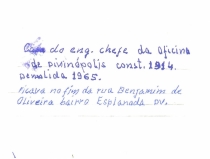 do eng. chefe da oficina
de Divinópolis const. 1914.
Demolida 1965.
Ficava no fim da rua Benjamim de
Oliveira bairro Esplanada DV.